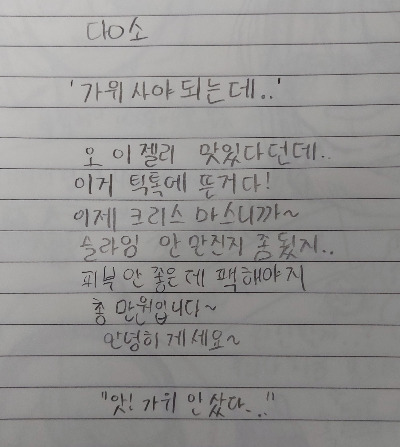 다이소
'가위 사야 되는데..'
오 이 젤리 맛있다던데..
이거 틱톡에 뜬거다!
이제 크리스 마스니까~
슬라임 안 만진지 좀 됐지..
피부 안 좋은데 팩해야지
총 만원입니다~
안녕히 계세요~
"앗! 가위 안 샀다..."